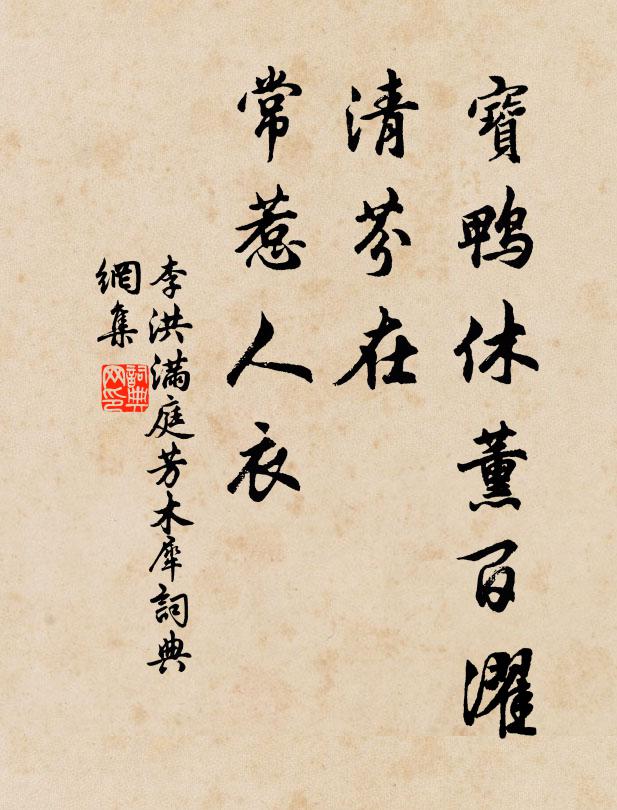 寶鴨休薰百濯
清芬在
常惹人衣
李洪滿庭芳木犀詞典
網集
詞典網印